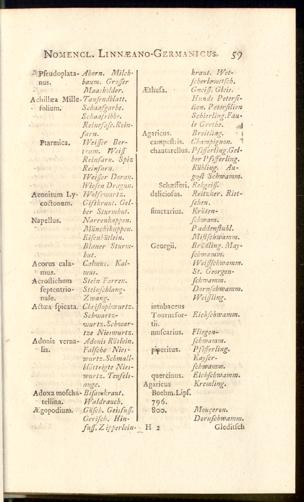 NOMENCL. LINNÆANO-GERMANICUS. 59
Pseudoplata- Ahorn. Milch-
nus. baum. Grosser
Maasholder.
Achillæa Mille- Tausendblatt.
folium. Schaafgarbe.
Schaafribbe.
Reinefase. Rein-
farn.
Ptarmica. Weisser Ber-
tram. Weiss
Reinfarn. Spiz
Reinfarn.
Weisser Doran.
Wiesen Dragun.
Aconitum Ly- Wolfswurtz.
coctonum. Giftkraut. Gel-
ber Sturmhut.
Napellus. Narrenkappen.
Münchskappen.
Eisenhütlein.
Blauer Sturm-
hut.
Acorus cala- Calmus. Kal-
mus. mus.
Acrostichum Stein Farren.
septentrio- Steinschlang.
nale. Zwang.
Actæa spicata. Christophwurtz.
Schwartz-
wurtz. Schwar-
tze Nieswurtz.
Adonis verna- Adonis Röslein.
lis. Falsche Nies-
wurtz. Schmall-
blätrigte Nies-
wurtz. Teufels-
auge.
Adoxa moscha- Bisamkraut.
tellina. Waldrauch.
Ægopodium. Gäsch. Geisfuss.
Gerisch. Hin-
fuss. Zipperlein-
kraut. Wet-
scherlewetsch.
Æthusa. Gneiss. Gleis.
Hunds Petersi-
lien. Petersilien
Schierling. Fau-
le Grethe.
Agaricus. Breitling.
campestris. Champignon.
chantarellus. Pfifferling. Gel-
ber Pfifferling.
Rühling. Au-
gust Schwamm.
Schæfferi. Rehgeiss.
deliciosus. Reitzker. Riet-
schen.
fimetarius. Kröten-
schwam.
Puddenstuhl.
Mistschwamm.
Georgii. Brätling. May-
schwamm.
Weisschwamm.
St. Georgen-
schwamm.
Dornschwamm.
Weissling.
intubaceus
Tournefor-
tii.
muscarius. Fliegen-
schwamm.
piperitus. Pfifferling.
Kayser-
schwamm.
quercinus. Eichschwamm.
Agaricus Kremling.
Boehm. Lips.
796.
800. Mouceron.
Dornschwamm.
H 2 Gleditsch